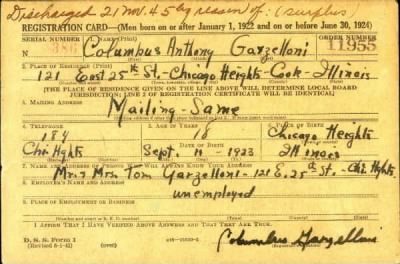 Discharged 21 Nov. 45 by reason of: 1 surplus
REGISTRATION CARD—(Men born on or after January 1, 1922 and on or before June 30, 1924)
SERIAL NUMBER 1. NAME (Print) ORDER NUMBER
Columbus Anthony Garzelloni 11955
2. PLACE OF RESIDENCE (Print)
121 East 25th St. Chicago Heights - Cook - Illinois
[THE PLACE OF RESIDENCE GIVEN ON THE LINE ABOVE WILL DETERMINE LOCAL BOARD
JURISDICTION; LINE 2 OF REGISTRATION CERTIFICATE WILL BE IDENTICAL]
3. MAILING ADDRESS
Mailing - Same
4. TELEPHONE 5. AGE IN YEARS 6. PLACE OF BIRTH
184 18 Chicago Heights
DATE OF BIRTH
Chi Hghts Sept 11 1923 Illinois
7. NAME AND ADDRESS OF PERSON WHO WILL ALWAYS KNOW YOUR ADDRESS
Mr. & Mrs. Tom Garzelloni - 121 E. 25th St. - Chi. Hghts.
8. EMPLOYER'S NAME AND ADDRESS
unemployed
9. PLACE OF EMPLOYMENT OR BUSINESS
I AFFIRM THAT I HAVE VERIFIED ABOVE ANSWERS AND THAT THEY ARE TRUE.
D. S. S. Form 1
(Revised 6-1-42) (over) Columbus Garzelloni